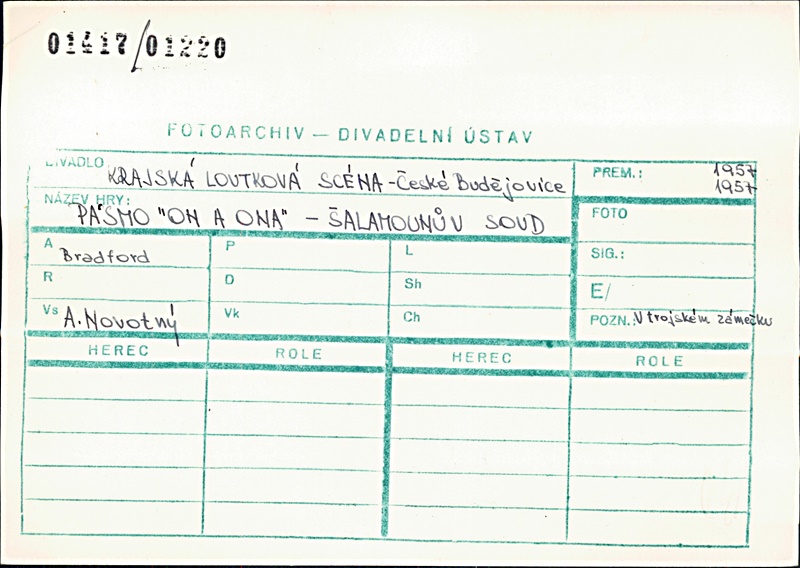 01417/01220
FOTOARCHIV — DIVADELNÍ ÚSTAV
DIVADLO KRAJSKÁ LOUTKOVÁ SCÉNA - České Budějovice
PREM.: 1957
1957
NÁZEV HRY: PÁSMO "ON A ONA" - ŠALAMOUNŮV SOUD
FOTO
A Bradford P L
SIG.:
R D Sh
E/
Vs A. Novotný Vk Ch
POZN.: V trojském zámečku
HEREC ROLE HEREC ROLE